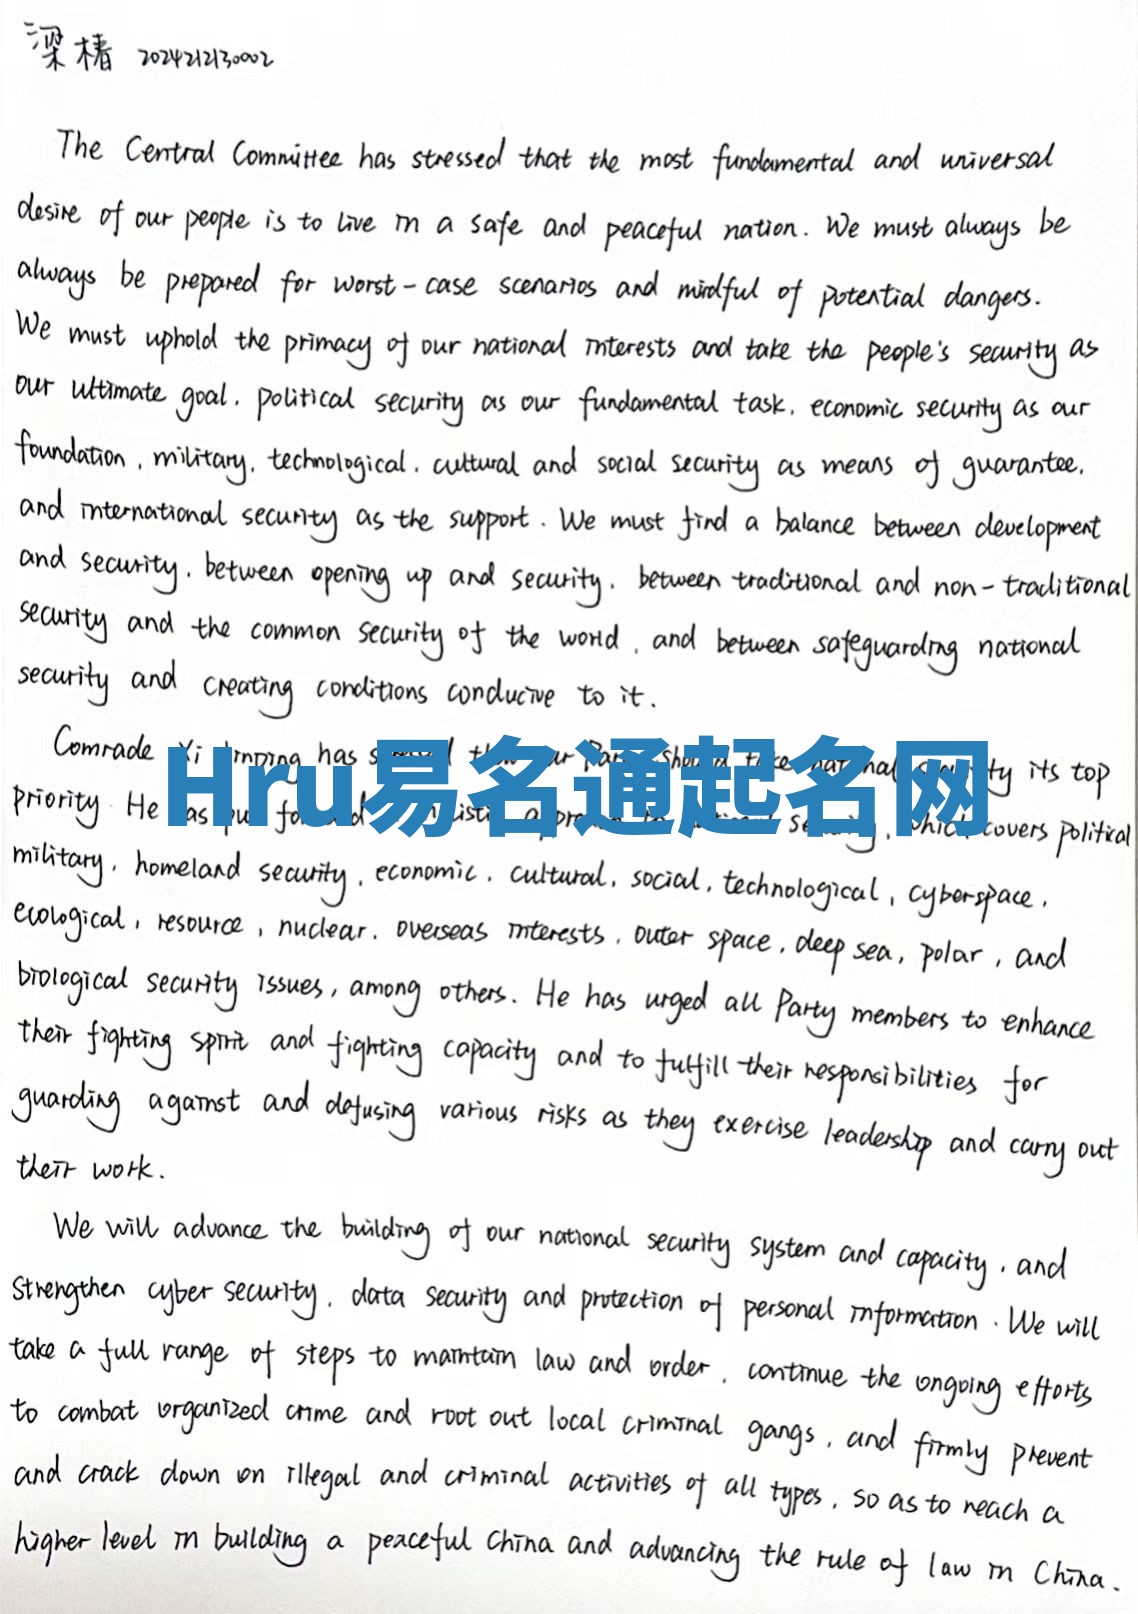 梁椿 2024212130002
The Central Committee has stressed that the most fundamental and universal
desire of our people is to live in a safe and peaceful nation. We must always be
always be prepared for worst-case scenarios and mindful of potential dangers.
We must uphold the primacy of our national interests and take the people's security as
our ultimate goal, political security as our fundamental task, economic security as our
foundation, military, technological, cultural and social security as means of guarantee,
and international security as the support. We must find a balance between development
and security, between opening up and security, between traditional and non-traditional
security and the common security of the world, and between safeguarding national
security and creating conditions conducive to it.
Comrade Xi Jinping has our Party should take national security its top
Hru易名通起名网
priority. He has put forward approach to security, which covers political
military, homeland security, economic, cultural, social, technological, cyberspace,
ecological, resource, nuclear, overseas interests, outer space, deep sea, polar, and
biological security issues, among others. He has urged all Party members to enhance
their fighting spirit and fighting capacity and to fulfill their responsibilities for
guarding against and defusing various risks as they exercise leadership and carry out
their work.
We will advance the building of our national security system and capacity, and
strengthen cyber security, data security and protection of personal information. We will
take a full range of steps to maintain law and order, continue the ongoing efforts
to combat organized crime and root out local criminal gangs, and firmly prevent
and crack down on illegal and criminal activities of all types, so as to reach a
higher level in building a peaceful China and advancing the rule of law in China.